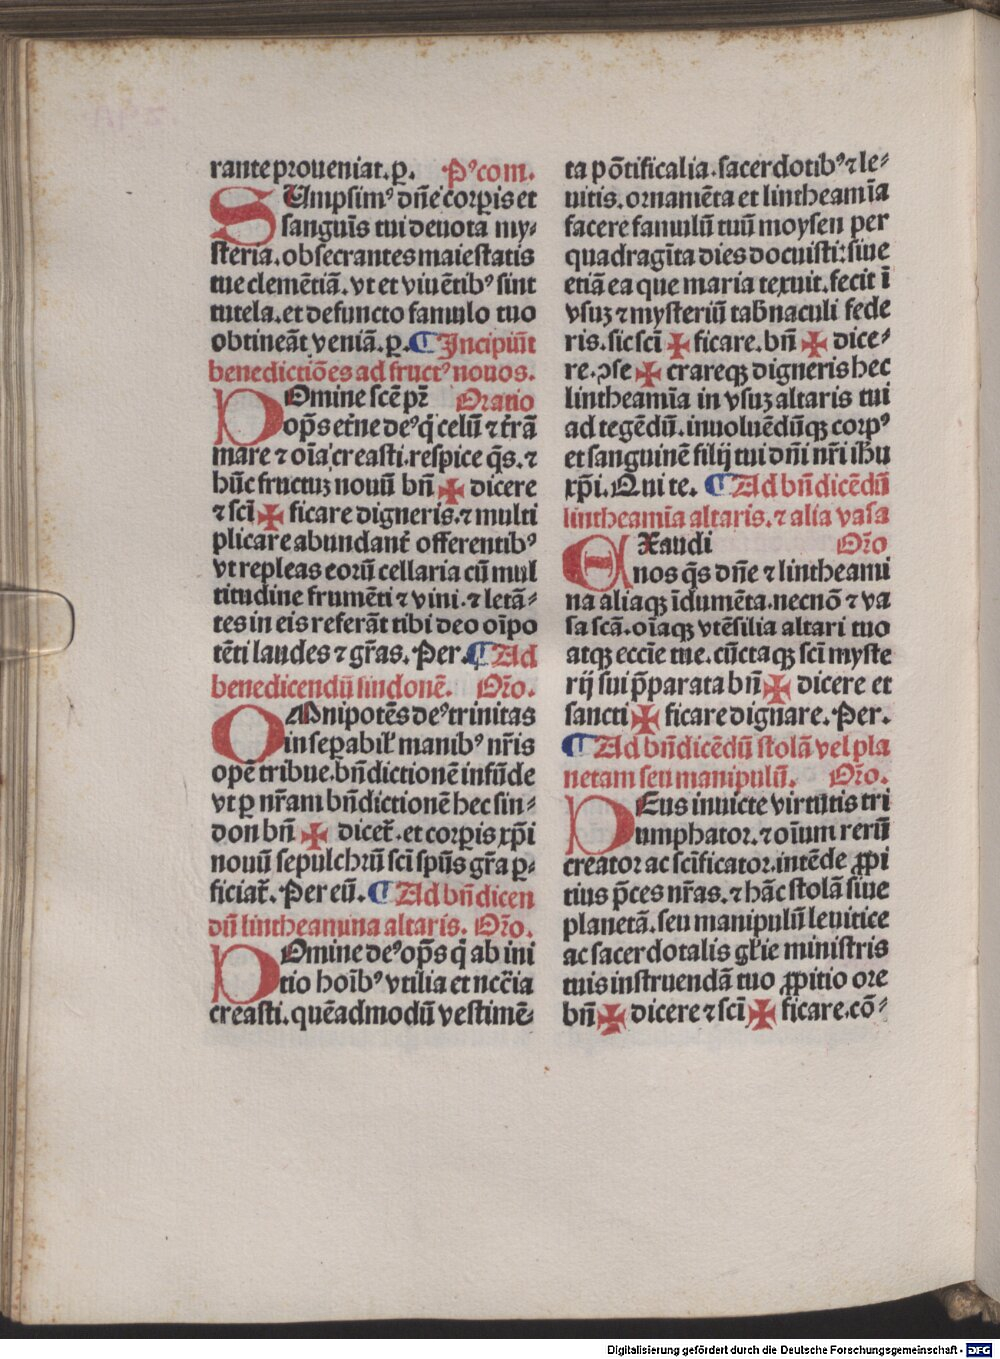 rante proueniat. ꝑ. P᷒com.
SUmpsim᷒ dn̄e corꝑis et
sanguīs tui deuota my⸗
steria. obsecrantes maiestatis
tue clemētiā. vt et viuētib᷒ sint
tutela. et defuncto famulo tuo
obtineāt veniā. ꝑ. ¶ Incipiūt
benedictiōes ad fruct᷒ nouos.
DOmine scē pr̄ Oratio
op̄s et̄ne de᷒ q̇ celū ⁊ t̄rā
mare ⁊ oīa creasti. respice q̄s. ⁊
hūc fructuꝫ nouū bn̄ ✠ dicere
⁊ scī ✠ ficare digneris. ⁊ multi
plicare abundant̄ offerentib᷒
vt repleas eorū cellaria cū mul
titudine frumēti ⁊ vini. ⁊ letā⸗
tes in eis referāt tibi deo oīpo
tēti laudes ⁊ gr̄as. Per. ¶ Ad
benedicendū sindonē. Or̄o.
OMnipotēs de᷒ trinitas
inseꝑabil̄ manib᷒ nr̄is
opē tribue. bn̄dictionē infūde
vt ꝑ nr̄am bn̄dictionē hec sin⸗
don bn̄ ✠ dicet̄. et corꝑis xp̄i
nouū sepulchrū scī sp̄us gr̄a ꝑ⸗
ficiat̄. Per eū. ¶ Ad bn̄dicen
dū lintheamina altaris. Or̄o.
DOmine de᷒ op̄s q̇ ab ini
tio hoīb᷒ vtilia et nccīa
creasti. quēadmodū vestimē⸗
ta pōtificalia. sacerdotib᷒ ⁊ le⸗
uitis. ornamēta et lintheamīa
facere famulū tuū moysen per
quadragīta dies docuisti: siue
etiā ea que maria texuit. fecit ī
vsuꝫ ⁊ mysteriū tab̄naculi fede
ris. sic scī ✠ ficare. bn̄ ✠ dice⸗
re. ꝯse ✠ crareqꝫ digneris hec
lintheamīa in vsuꝫ altaris tui
ad tegēdū. inuoluēdūqꝫ corp᷒
et sanguinē filij tui dn̄i nr̄i ih̄u
xp̄i. Qui te. ¶ Ad bn̄dicēdū
lintheamīa altaris. ⁊ alia vasa
EXaudi Or̄o
nos q̄s dn̄e ⁊ lintheami
na aliaqꝫ īdumēta. necnō ⁊ va
sa scā. oīaqꝫ vtēsilia altari tuo
atqꝫ eccīe tue. cūctaqꝫ scī myste
rij sui p̄parata bn̄ ✠ dicere et
sancti ✠ ficare dignare. Per.
¶ Ad bn̄dicēdū stolā vel pla
netam seu manipulū. Or̄o.
DEus inuicte virtutis tri
umphator. ⁊ oīum rerū
creator ac scīficator. intēde ꝓpi
tius p̄ces nr̄as. ⁊ hāc stolā siue
planetā. seu manipulū leuitice
ac sacerdotalis gl̄ie ministris
tuis instruendā tuo ꝓpitio ore
bn̄ ✠ dicere ⁊ scī ✠ ficare. cō⸗
Digitalisierung gefördert durch die Deutsche Forschungsgemeinschaft - DFG